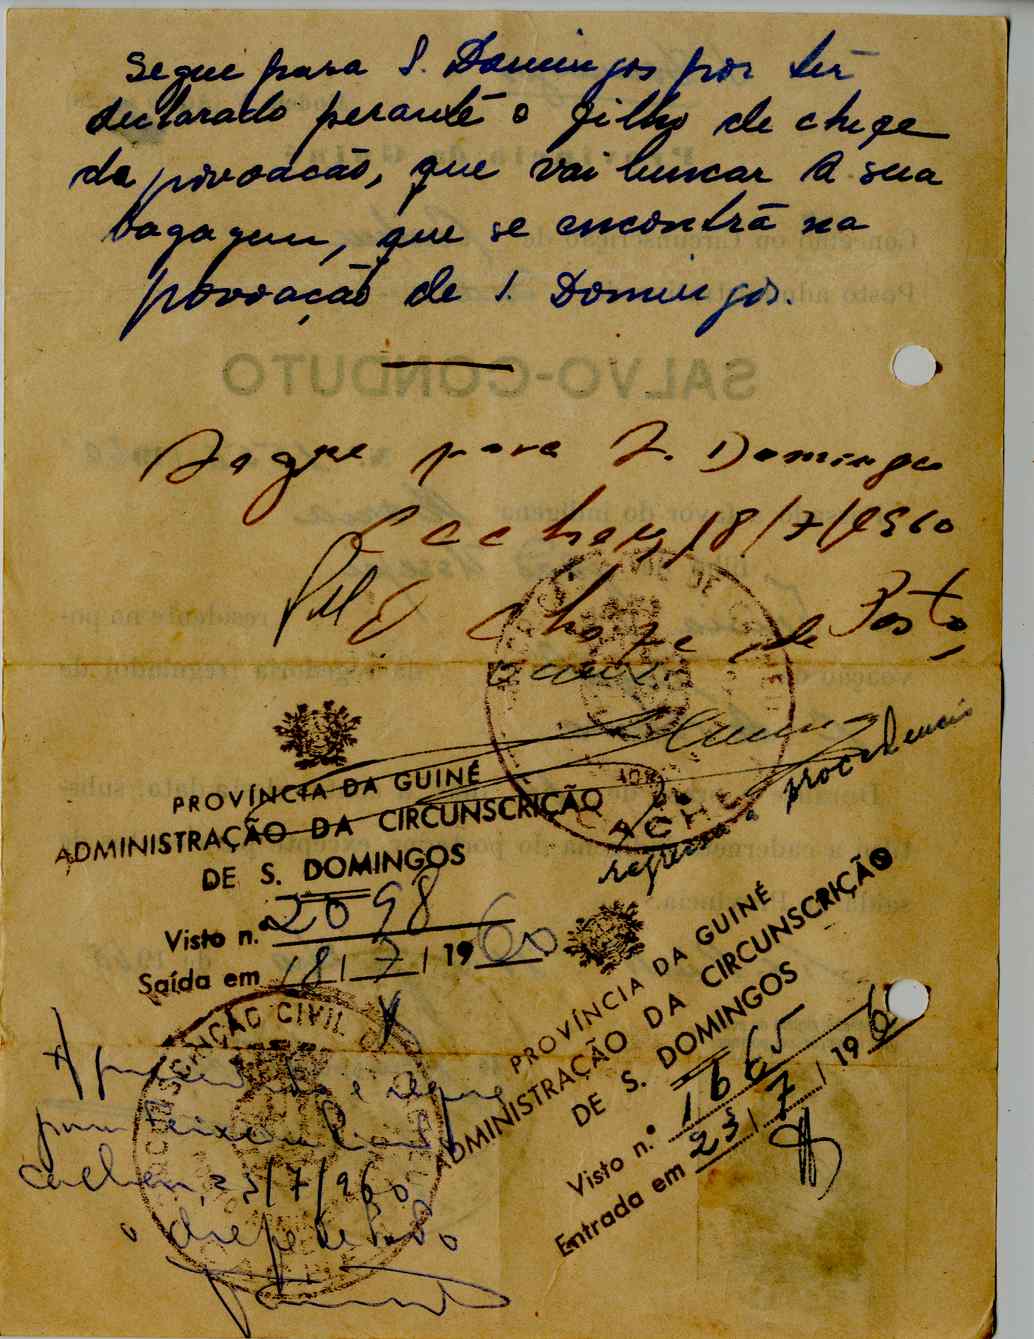 Segue para S. Domingos por ter
declarado perante o filho de chefe
da povoação, que vai buscar a sua
bagagem, que se encontra na
povoação de S. Domingos.
Segue para S. Domingos
Cacheu, 18/7/1960
O Chefe de Posto,
regressa à procedencia
PROVÍNCIA DA GUINÉ
ADMINISTRAÇÃO DA CIRCUNSCRIÇÃO
DE S. DOMINGOS
Visto n.º 2098
Saída em 18/7/1960
PROVÍNCIA DA GUINÉ
ADMINISTRAÇÃO DA CIRCUNSCRIÇÃO
DE S. DOMINGOS
Visto n.º 1665
Entrada em 23/7/196
CIVIL
Apresentado e segue
para Teixeira Pinto
Cacheu, 23/7/960
o chefe de Posto
SALVO-CONDUTO